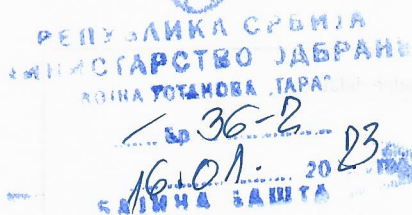 РЕПУБЛИКА СРБИЈА
МИНИСТАРСТВО ОДБРАНЕ
ВОЈНА УСТАНОВА „ТАРА"
Бр 36-2
16.01. 2023
БАЈИНА БАШТА